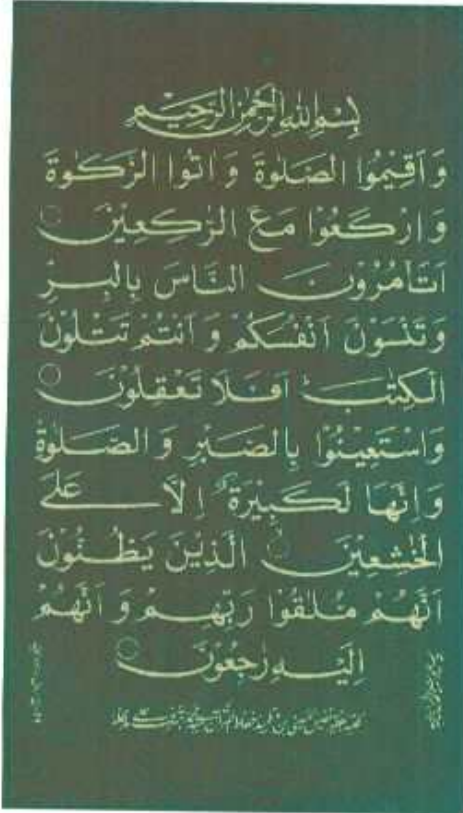 بِسْمِ اللهِ الرَّحْمٰنِ الرَّحِيْمِ
وَ اَقِيْمُوا الصَّلٰوةَ وَ اٰتُوا الزَّكٰوةَ
وَ ارْكَعُوْا مَعَ الرّٰكِعِيْنَ
اَتَاْمُرُوْنَ النَّاسَ بِالْبِرِّ
وَ تَنْسَوْنَ اَنْفُسَكُمْ وَ اَنْتُمْ تَتْلُوْنَ
الْكِتٰبَ اَفَلَا تَعْقِلُوْنَ
وَ اسْتَعِيْنُوْا بِالصَّبْرِ وَ الصَّلٰوةِ
وَ اِنَّهَا لَكَبِيْرَةٌ اِلَّا عَلَى
الْخٰشِعِيْنَ الَّذِيْنَ يَظُنُّوْنَ
اَنَّهُمْ مُلٰقُوْا رَبِّهِمْ وَ اَنَّهُمْ
اِلَيْهِ رٰجِعُوْنَ